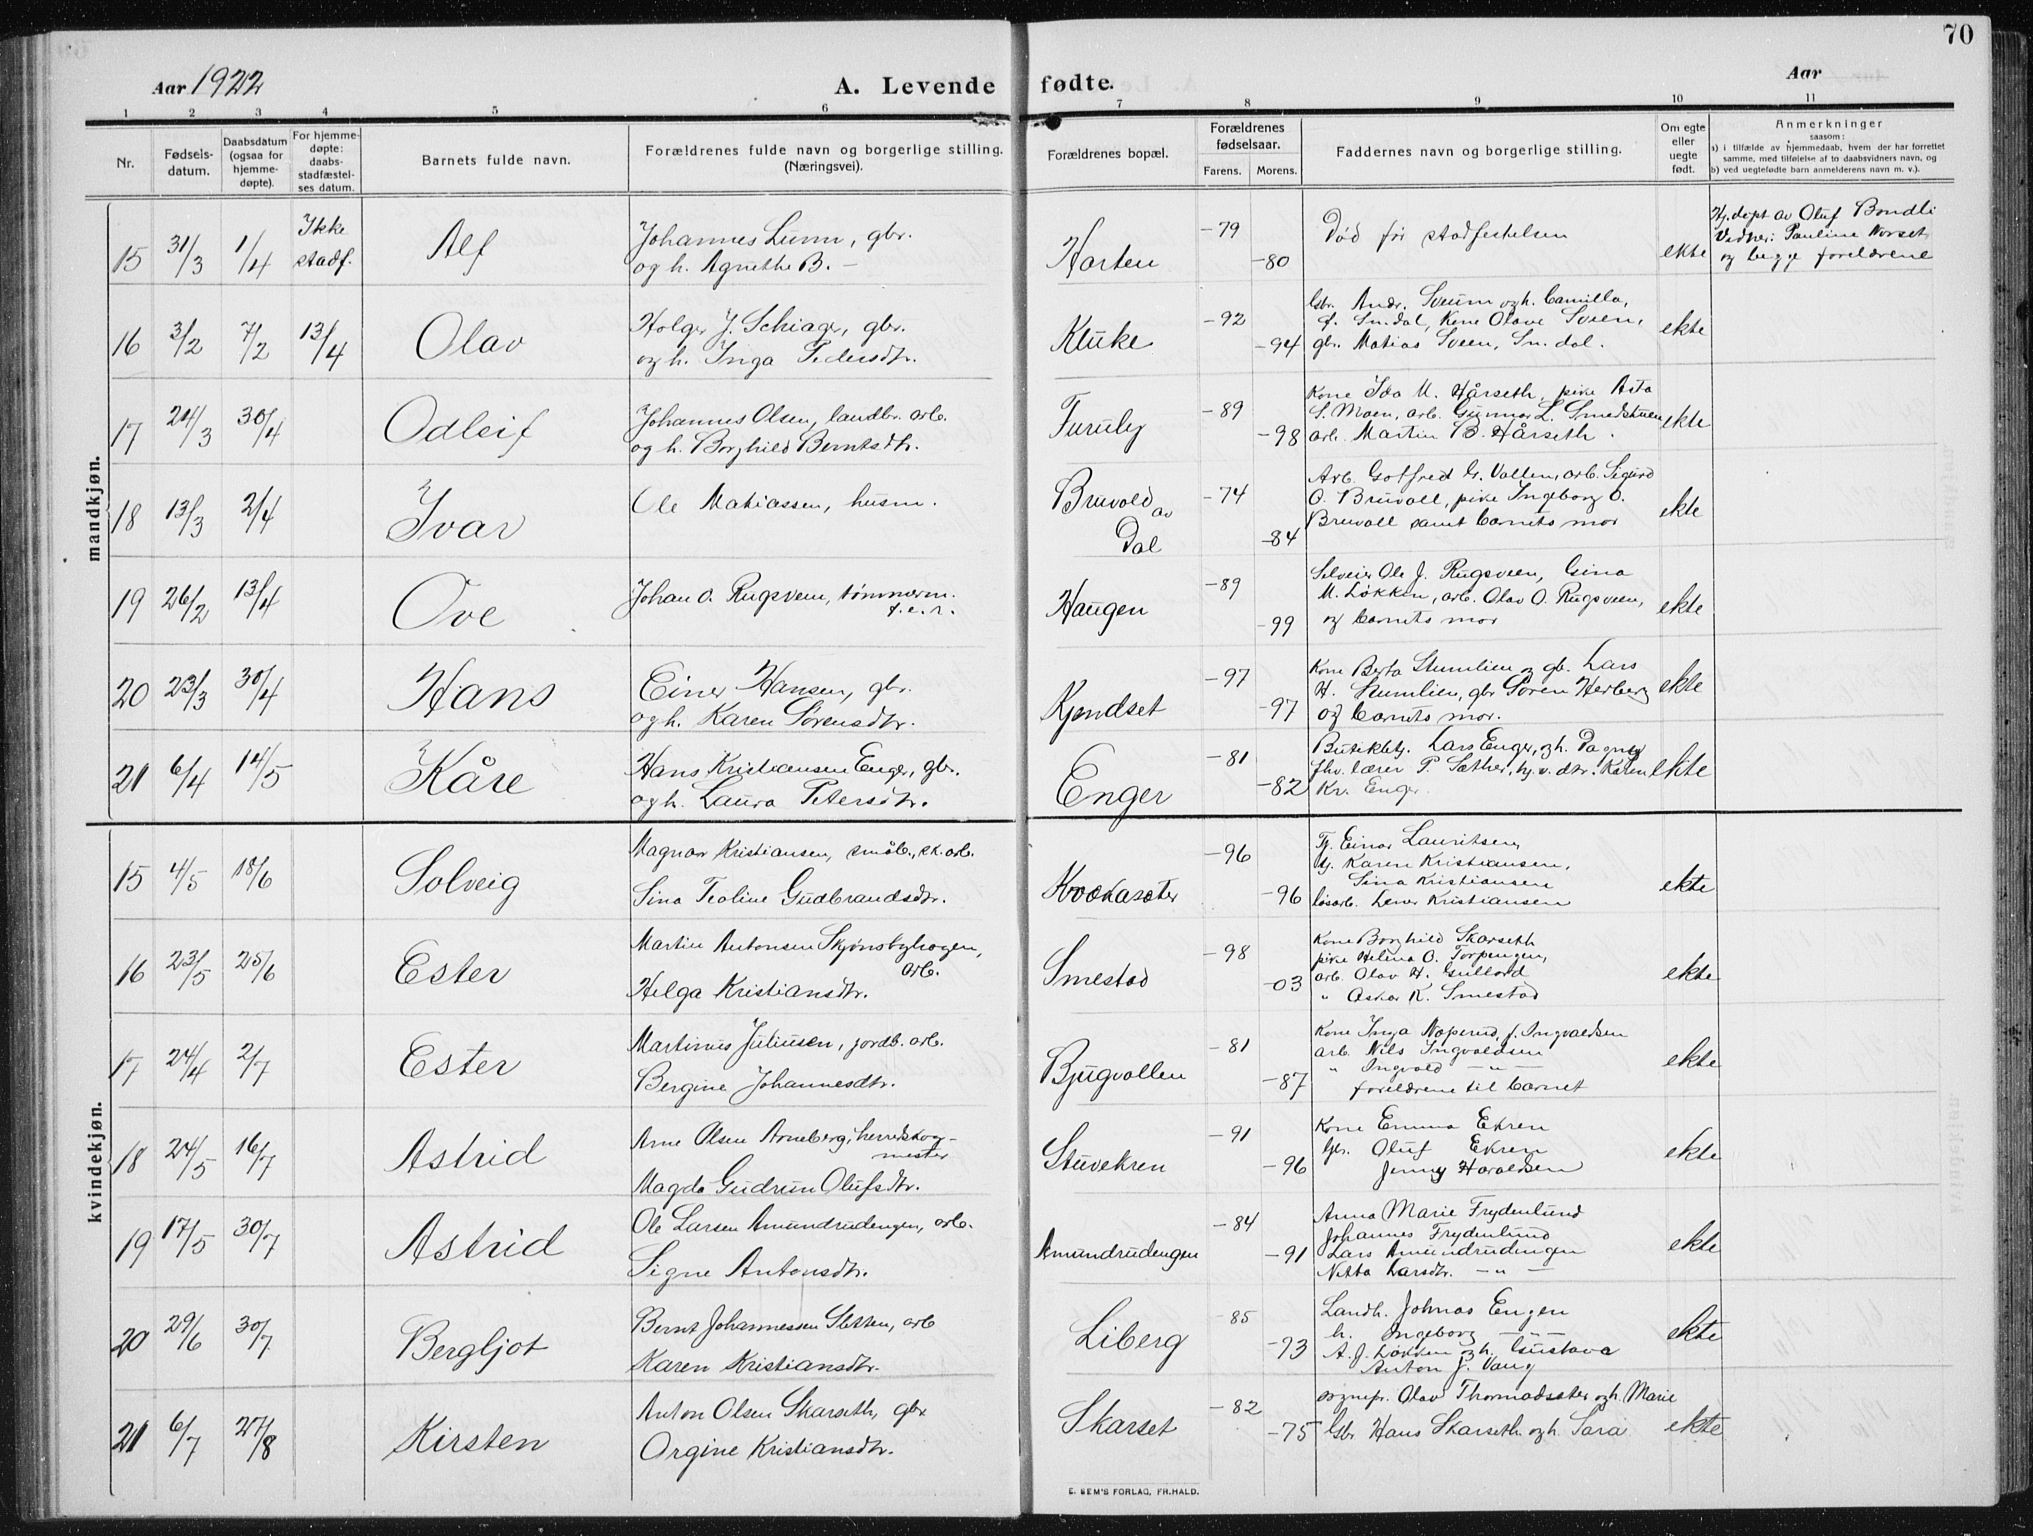 70
Aar 1922
A. Levende fødte.
Aar
1 2 3 4 5 6 7 8 9 10 11
Nr.
Fødsels-
datum.
Daabsdatum
(ogsaa for
hjemme-
døpte).
For hjemme-
døpte:
daabs-
stadfæstel-
ses datum.
Barnets fulde navn.
Forældrenes fulde navn og borgerlige stilling.
(Næringsvei).
Forældrenes bopæl.
Forældrenes
fødselsaar.
Farens. Morens.
Faddernes navn og borgerlige stilling.
Om egte
eller
uegte
født.
Anmerkninger
saasom:
a) i tilfælde av hjemmedaab, hvem der har forrettet
samme, med tilføielse af to daabsvidners navn, og
b) ved uegtefødte barn anmelderens navn m. v.).
mandkjøn.
15 31/3 1/4 Ikke
stadf.
Alf
Johannes Lunn, gbr.
og h. Agnethe B. –
Harten
-79
-80
Død før stadfestelsen
ekte
Hj.døpt av Oluf Bondli
Vidner: Pauline Norset
og begge forældrene
16 3/2 7/2 13/4
Olav
Holger J. Schiager, gbr.
og h. Inga Pedersdtr.
Kluke
-92
-94
Gbr. Andr. Sveum og h. Camilla,
Sn.dal, Kone Olave Sveen,
gbr. Matias Sveen, Sn.dal.
ekte
17 24/3 30/4
Odleif
Johannes Olsen, landbr. arb.
og h. Borghild Berntsdtr.
Furuly
-89
-98
Kone Ida M. Hårseth, pike Asta
S. Moen, arb. Gunnar L. Smedstuen
arb. Martin B. Hårseth.
ekte
18 13/3 2/4
Ivar
Ole Matiassen, husm.
Bruvold
av
Dal
-74
-84
Arb. Gotfred Gr. Vollen, arb. Sigurd
O. Bruvoll, pike Ingeborg O.
Bruvoll samt barnets mor
ekte
19 26/2 13/4
Ove
Johan O. Rugsveen, tømmerm.
f.e.r.
Haugen
-89
-99
Selveier Ole J. Rugsveen, Gina
M. Løkken, arb. Olav O. Rugsveen,
og barnets mor
ekte
20 23/3 30/4
Hans
Einer Hansen, gbr.
og h. Karen Sørensdtr.
Kjendset
-97
-97
Kone Berta Stumlien og gb. Lars
H. Stumlien, gbr Søren Herberg
og barnets mor.
ekte
21 6/4 14/5
Kåre
Hans Kristiansen Enger, gbr.
og h. Laura Petersdtr.
Enger
-81
-82
Butikkbetj. Lars Enger, og h. Dagny
fhv. lærer P. Sæther, hj.v. dtr. Karen
Kr. Enger.
ekte
kvindekjøn.
15 4/5 18/6
Solveig
Magnar Kristiansen, småb., sk. arb.
Sina Teoline Gudbrandsdtr.
Kvækasæter
-96
-96
Tj. Einar Lauritsen,
tj. Karen Kristiansen,
Sina Kristiansen
løsarb. Lener Kristiansen
ekte
16 23/5 25/6
Ester
Martin Antonsen Skjønsbyhagen,
arb.
Helga Kristiansdtr.
Smestad
-98
-03
Kone Borghild Skarseth
pike Helina O. Torpengen,
arb. Olav H. Gullord
" Asker K. Smestad
ekte
17 24/4 2/7
Ester
Martinus Juliusen, jordb. arb.
Bergine Johannesdtr.
Bjugvollen
-81
-87
Kone Inga Noperud, f. Ingvaldsen
arb. Nils Ingvaldsen
" Ingvald – " –
forældrene til barnet
ekte
18 24/5 16/7
Astrid
Arne Olsen Arneberg, herredskog-
mester
Magda Gudrun Olufsdtr.
Stuvekren
-91
-96
Kone Emma Ekren
Gbr. Oluf Ekren
Jenny Haraldsen
ekte
19 17/5 30/7
Astrid
Ole Larsen Amundrudengen, arb.
Signe Antonsdtr.
Amundrudengen
-84
-91
Anna Marie Frydenlund
Johannes Frydenlund
Lars Amundrudengen
Netta Larsdtr. – " –
ekte
20 29/6 30/7
Bergljot
Bernt Johannessen Sletten, arb
Karen Kristiansdtr.
Liberg
-85
-93
Landh. Johnas Engen
h. Ingeborg – " –
A. J. Løkken og h. Gustava
Anton J. Vang
ekte
21 6/7 27/8
Kirsten
Anton Olsen Skarseth, gbr
Orgine Kristiansdtr.
Skarset
-82
-75
sognepr. Olav Thormodsæter og h. Marie
Gbr Hans Skarseth og h. Sara
ekte
E. SEM'S FORLAG, FR.HALD.